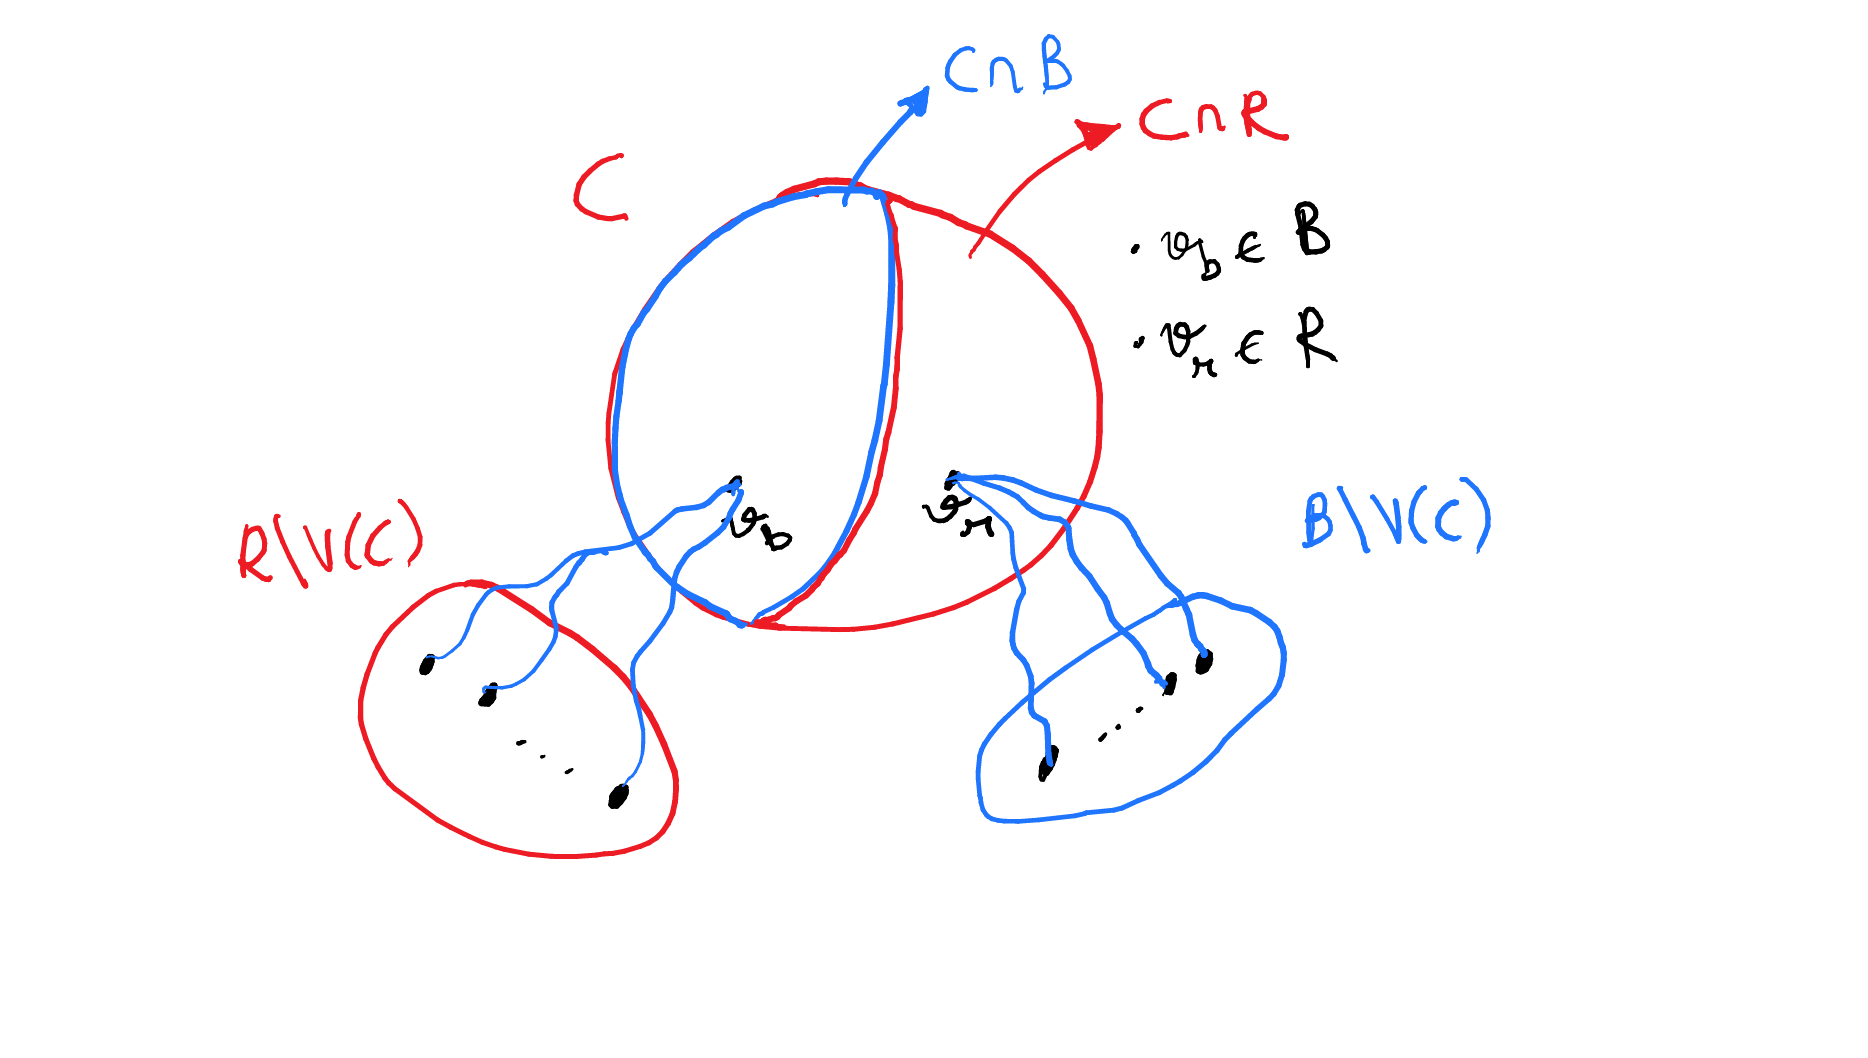 C∩B
C∩R
C
· v_b ∈ B
· v_r ∈ R
v_b
v_r
R\V(C)
B\V(C)